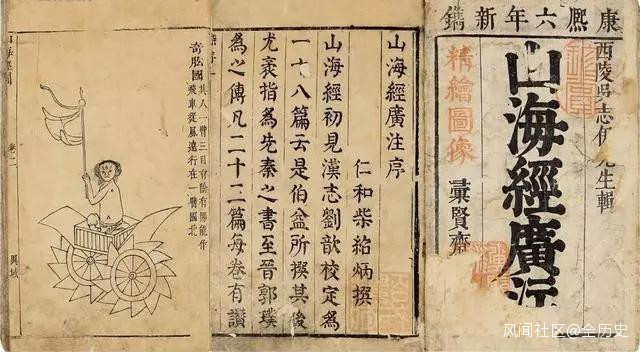 康熙六年新鐫
西陵吳志伊先生輯
山海經廣注
精繪圖像
彙賢齋
山海經廣注序
仁和柴紹炳撰
山海經初見漢志劉歆校定為
一十八篇云是伯益所撰其後
尤袤指為先秦之書至晉郭璞
為之傳凡二十三篇每卷有讚
奇肱國
其人一臂三目有陰有陽能作
飛車從風遠行在一臂國北
卷二
異域
风闻社区@全历史